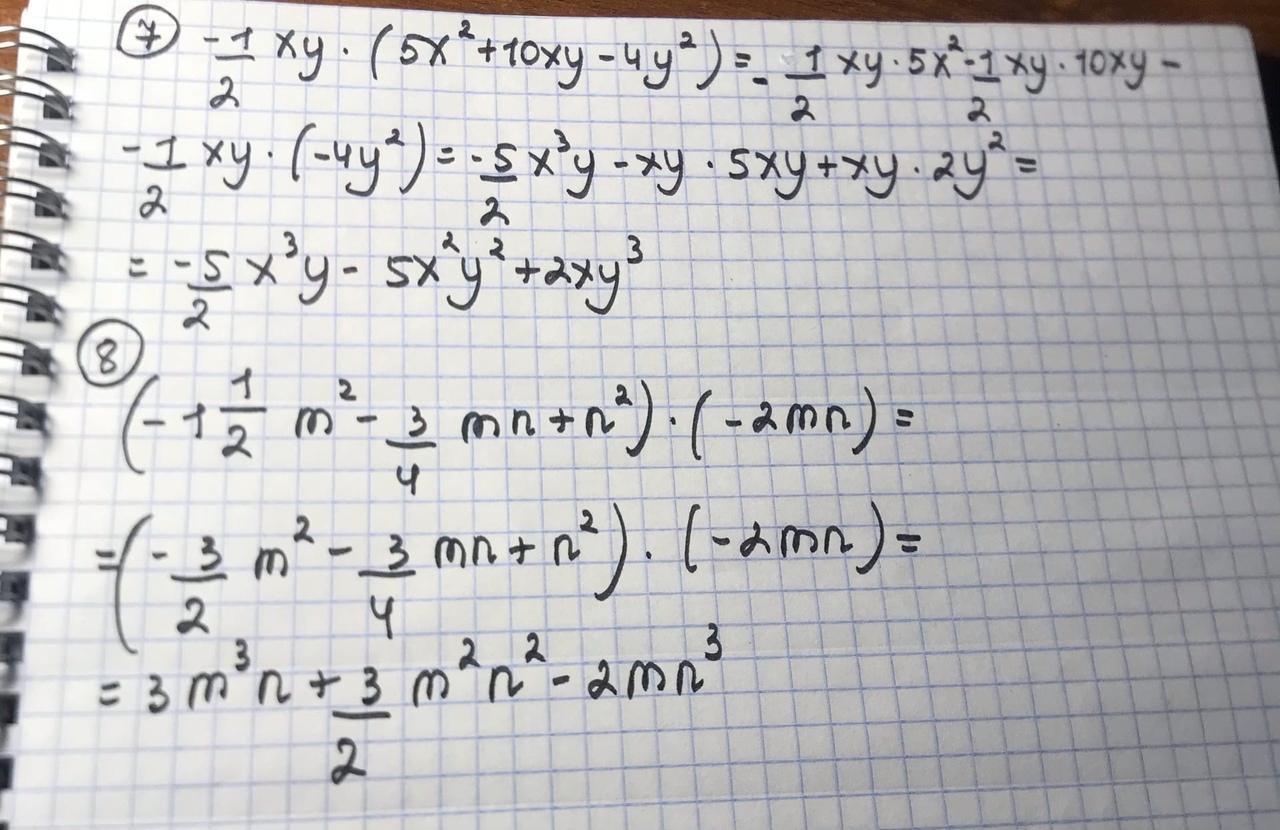 ⑦ -1/2 xy · (5x²+10xy-4y²) = - 1/2 xy · 5x² - 1/2 xy · 10xy -
- 1/2 xy · (-4y²) = - 5/2 x³y - xy · 5xy + xy · 2y² =
= - 5/2 x³y - 5x²y² + 2xy³
⑧
(- 1 1/2 m² - 3/4 mn + n²) · (-2mn) =
= (- 3/2 m² - 3/4 mn + n²) · (-2mn) =
= 3m³n + 3/2 m²n² - 2mn³